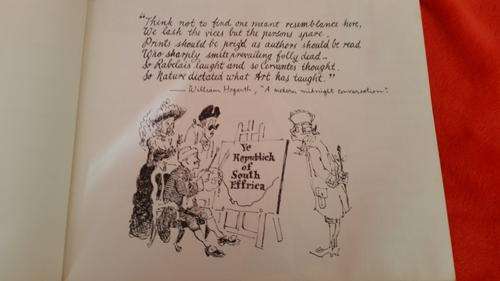 "Think not to find one meant resemblance here,
We lash the vices but the persons spare.
Prints should be priz'd as authors should be read
Who sharply smile prevailing folly dead..
So Rabelais laught and so Cervantes thought.
So Nature dictated what Art has taught."
— William Hogarth, "A modern midnight conversation".
Ye
Republick
of
South
Effrica